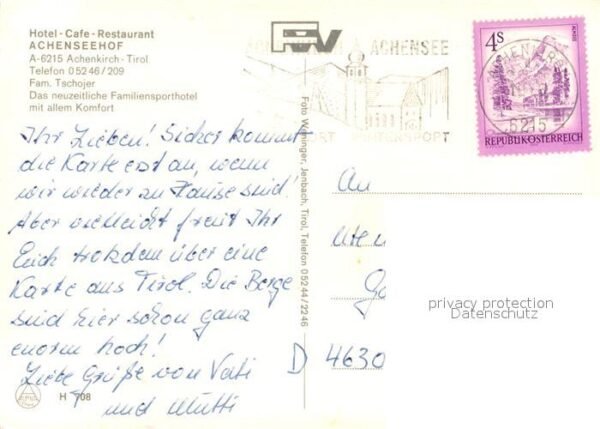 Hotel - Cafe - Restaurant
ACHENSEEHOF
A-6215 Achenkirch - Tirol
Telefon 05246/209
Fam. Tschojer
Das neuzeitliche Familiensporthotel
mit allem Komfort
Ihr Lieben! Sicher kommt
die Karte erst an, wenn
wir wieder zu Hause sind!
Aber vielleicht freut Ihr
Euch trotzdem über eine
Karte aus Tirol. Die Berge
sind hier schon ganz
enorm hoch!
Liebe Grüße von Vati
und Mutti
H 708
Foto Wöhinger, Jenbach, Tirol, Telefon 05244/2246
ACHENSEE
WINTERSPORT
4S
6215
REPUBLIK ÖSTERREICH
An
Ute
D 4630
privacy protection
Datenschutz